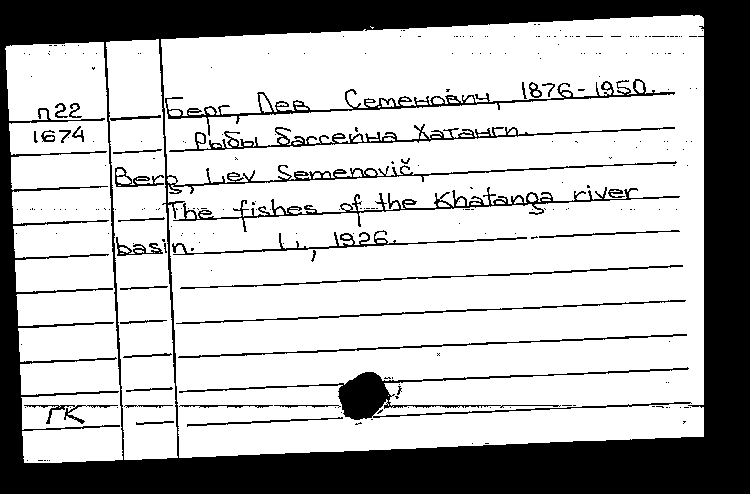 п22 Берг, Лев Семенович, 1876-1950.
1674 Рыбы бассейна Хатанги.
Berg, Lev Semenovič,
The fishes of the Khatanga river
basin. L., 1926.
ГК